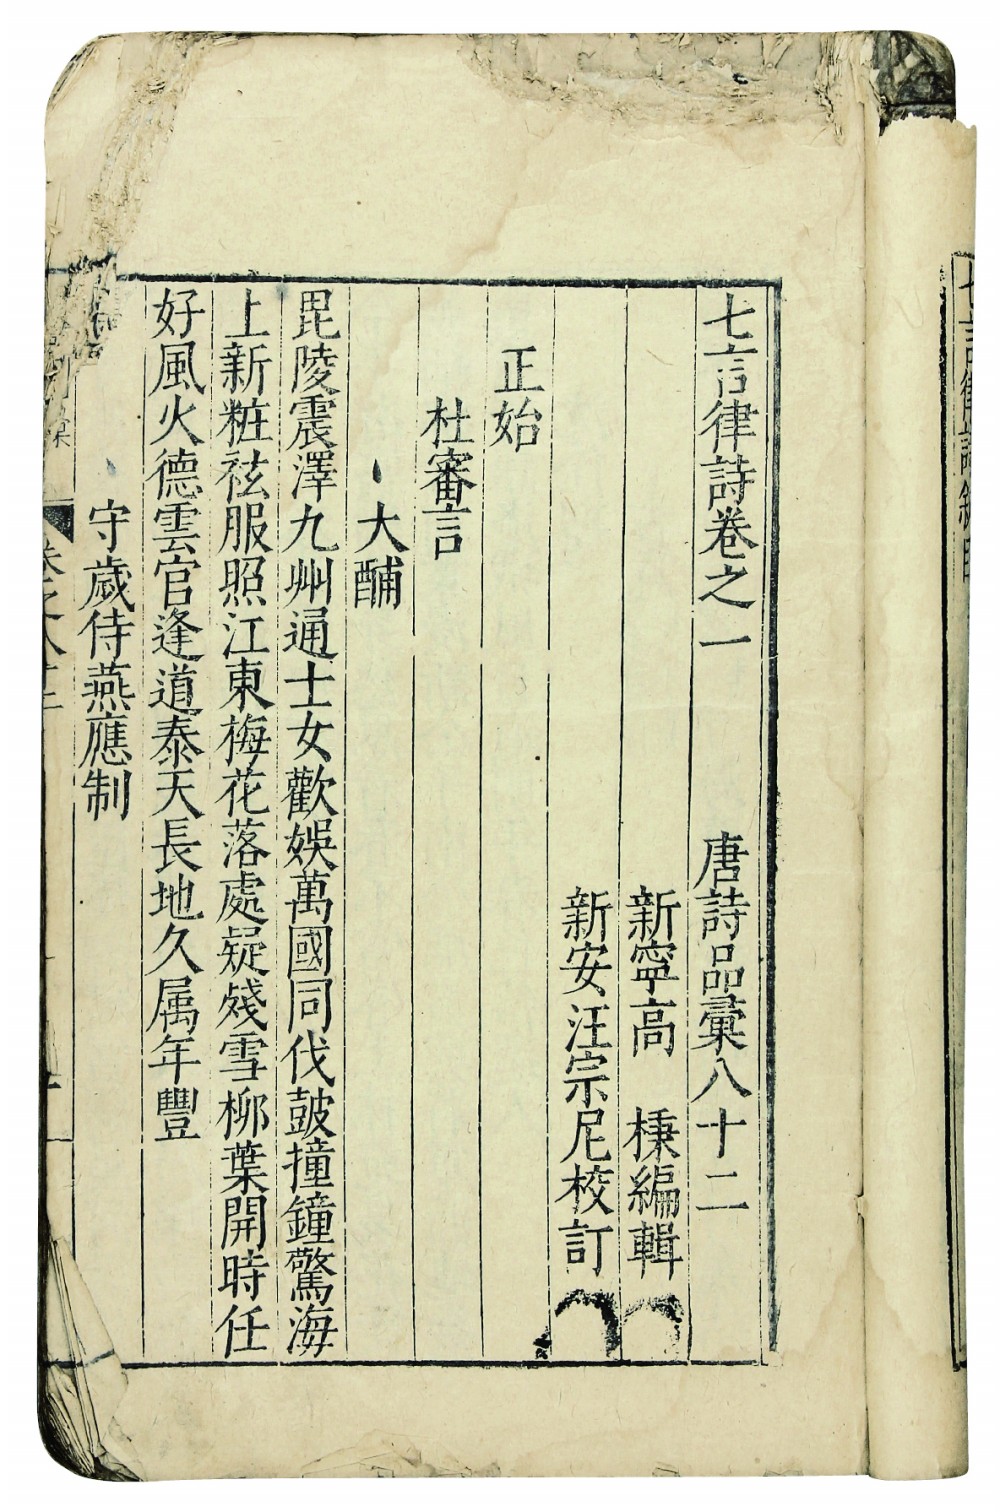 七言律詩卷之一　唐詩品彙八十二
新寧高　棅編輯
新安汪宗尼校訂
正始
杜審言
大酺
毘陵震澤九州通士女歡娛萬國同伐皷撞鐘驚海
上新粧袨服照江東梅花落處疑殘雪柳葉開時任
好風火德雲官逢道泰天長地久属年豐
守歲侍燕應制